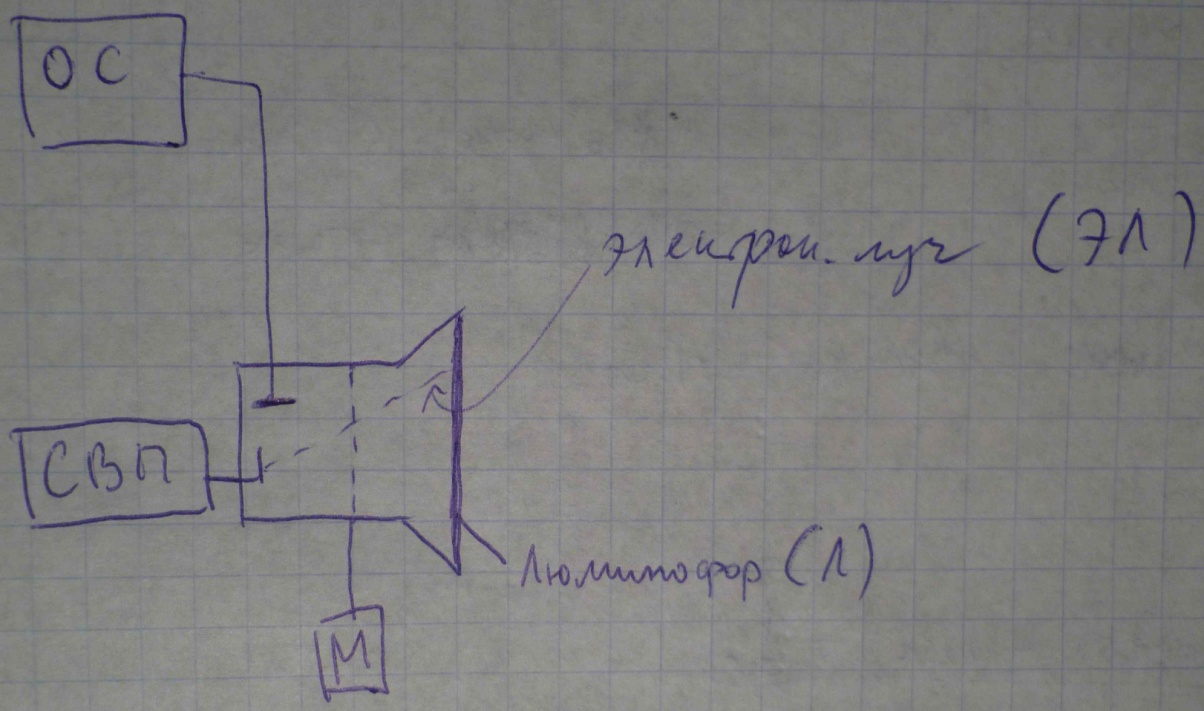 ОС
электрон. луч (ЭЛ)
СВП
Люминофор (Л)
М